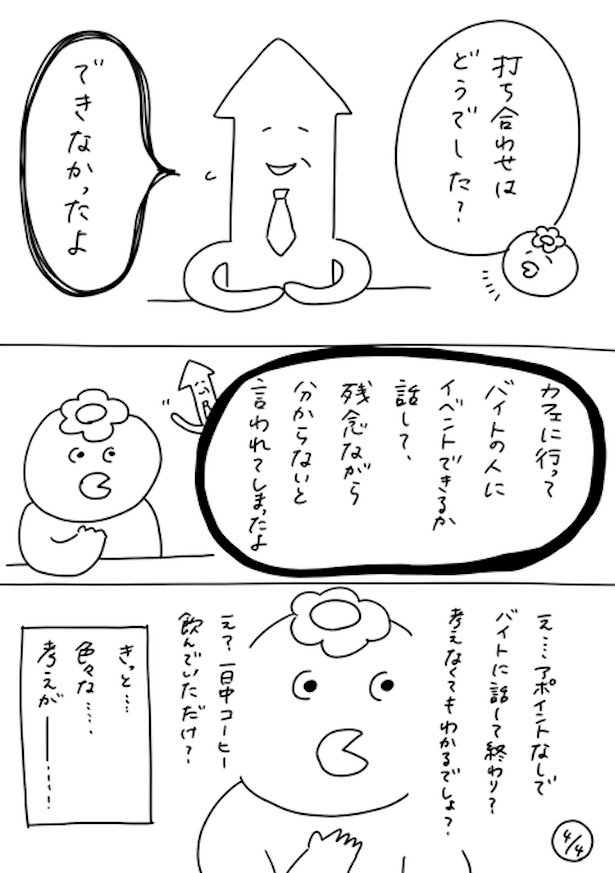 打ち合わせは
どうでした？
できなかったよ
カフェに行って
バイトの人に
イベントできるか
話して、
残念ながら
分からないと
言われてしまったよ
え…アポイントなしで
バイトに話して終わり？
考えなくてもわかるでしょ？
え？一日中コーヒー
飲んでいただけ？
きっと…
色々な…、
考えが――…！
4/4